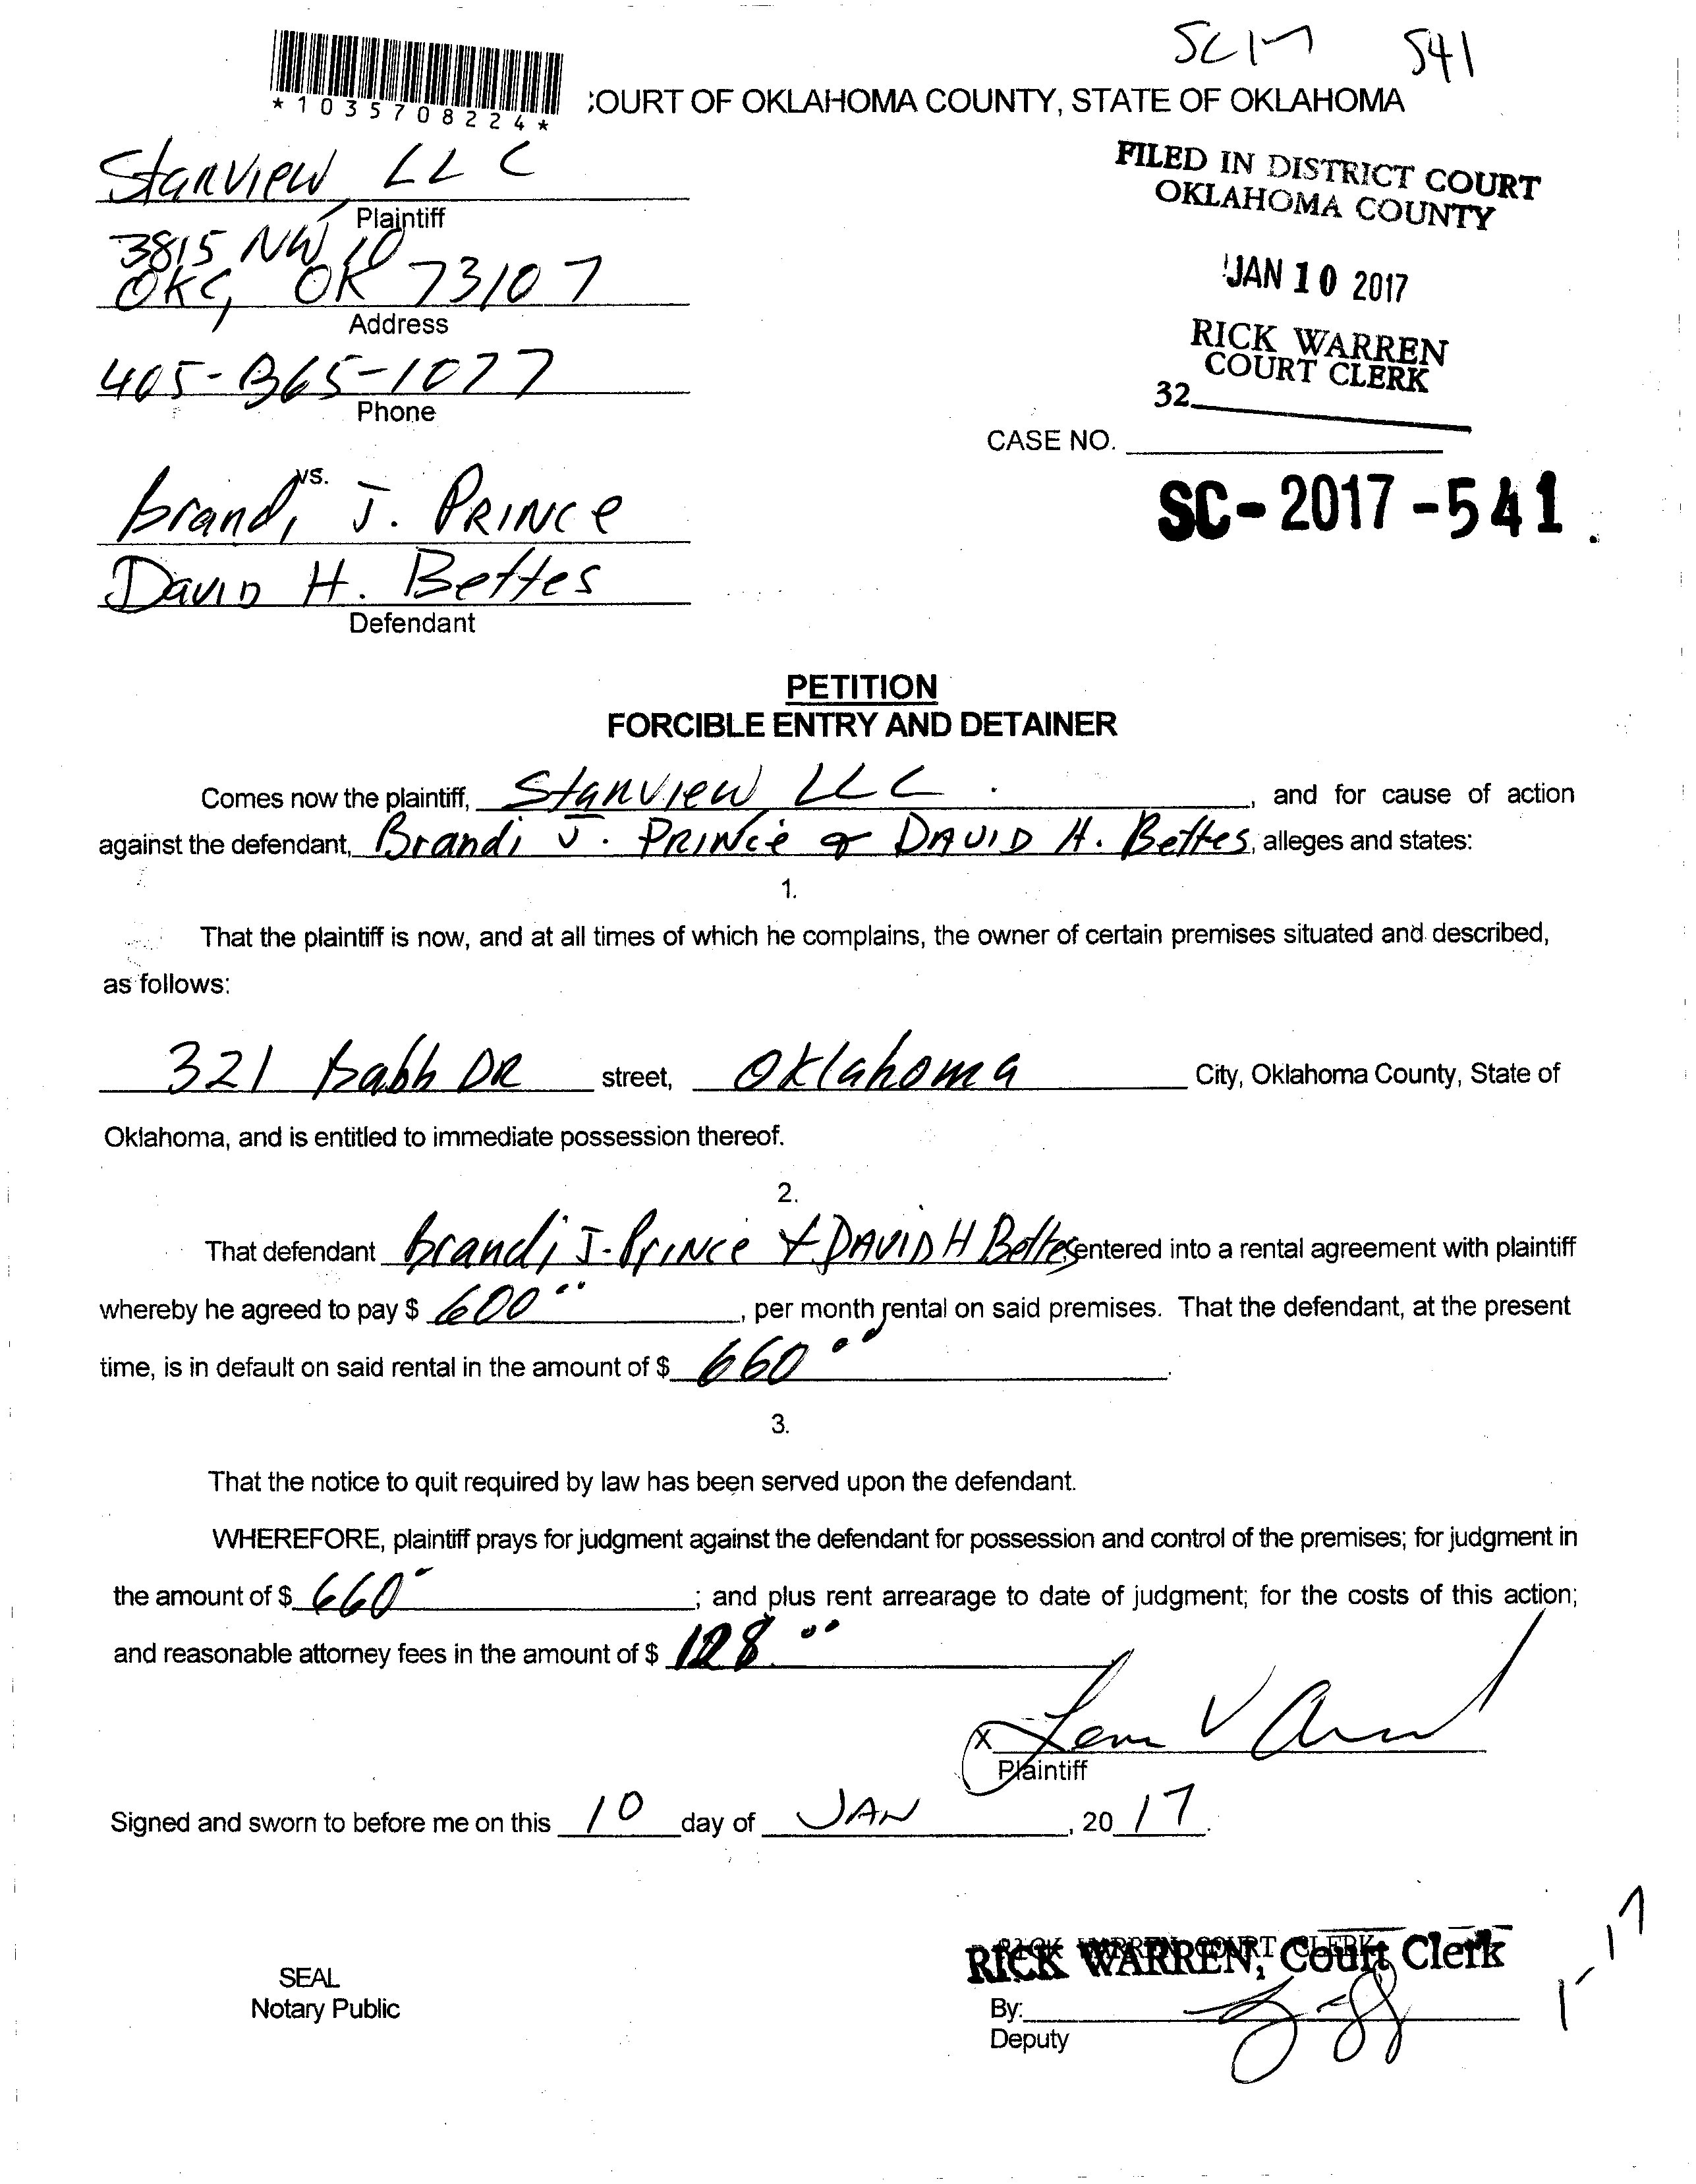 SC 17 541
*1035708224*
COURT OF OKLAHOMA COUNTY, STATE OF OKLAHOMA
Starview LLC
Plaintiff
3815 NW 10
OKC, OK 73107
Address
405-365-1077
Phone
FILED IN DISTRICT COURT
OKLAHOMA COUNTY
JAN 10 2017
RICK WARREN
COURT CLERK
32
CASE NO.
SC-2017-541
vs.
Brandi J. PRINCe
DAVID H. Bettes
Defendant
PETITION
FORCIBLE ENTRY AND DETAINER
Comes now the plaintiff, Starview LLC, and for cause of action
against the defendant, Brandi J. PRINCe & DAVID H. Bettes, alleges and states:
1.
That the plaintiff is now, and at all times of which he complains, the owner of certain premises situated and described,
as follows:
321 Babb DR street, Oklahoma City, Oklahoma County, State of
Oklahoma, and is entitled to immediate possession thereof.
2.
That defendant Brandi J. Prince & DAVID H Bettes entered into a rental agreement with plaintiff
whereby he agreed to pay $ 600 00, per month rental on said premises. That the defendant, at the present
time, is in default on said rental in the amount of $ 660 00.
3.
That the notice to quit required by law has been served upon the defendant.
WHEREFORE, plaintiff prays for judgment against the defendant for possession and control of the premises; for judgment in
the amount of $ 660 ; and plus rent arrearage to date of judgment; for the costs of this action;
and reasonable attorney fees in the amount of $ 128 00
X
Plaintiff
Signed and sworn to before me on this 10 day of JAN, 20 17.
RICK WARREN, Court Clerk
SEAL
Notary Public
By:
Deputy
1-17